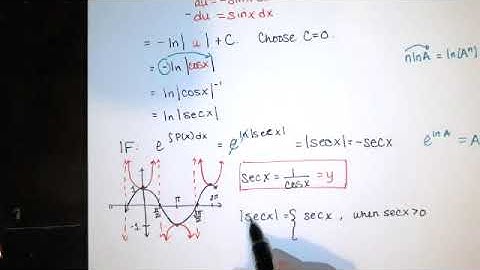 du = -sinx dx
-du = sinx dx
= -ln|u| + C. Choose C=0.
= -ln|cosx|
= ln|cosx|⁻¹
= ln|secx|
nlnA = ln(Aⁿ)
IF: e^∫P(x)dx = e^ln|secx| = |secx| = -secx
e^lnA = A
secx = 1/cosx = y
1
-1
π/2 π 3π/2 2π
|secx| = { secx, when secx>0